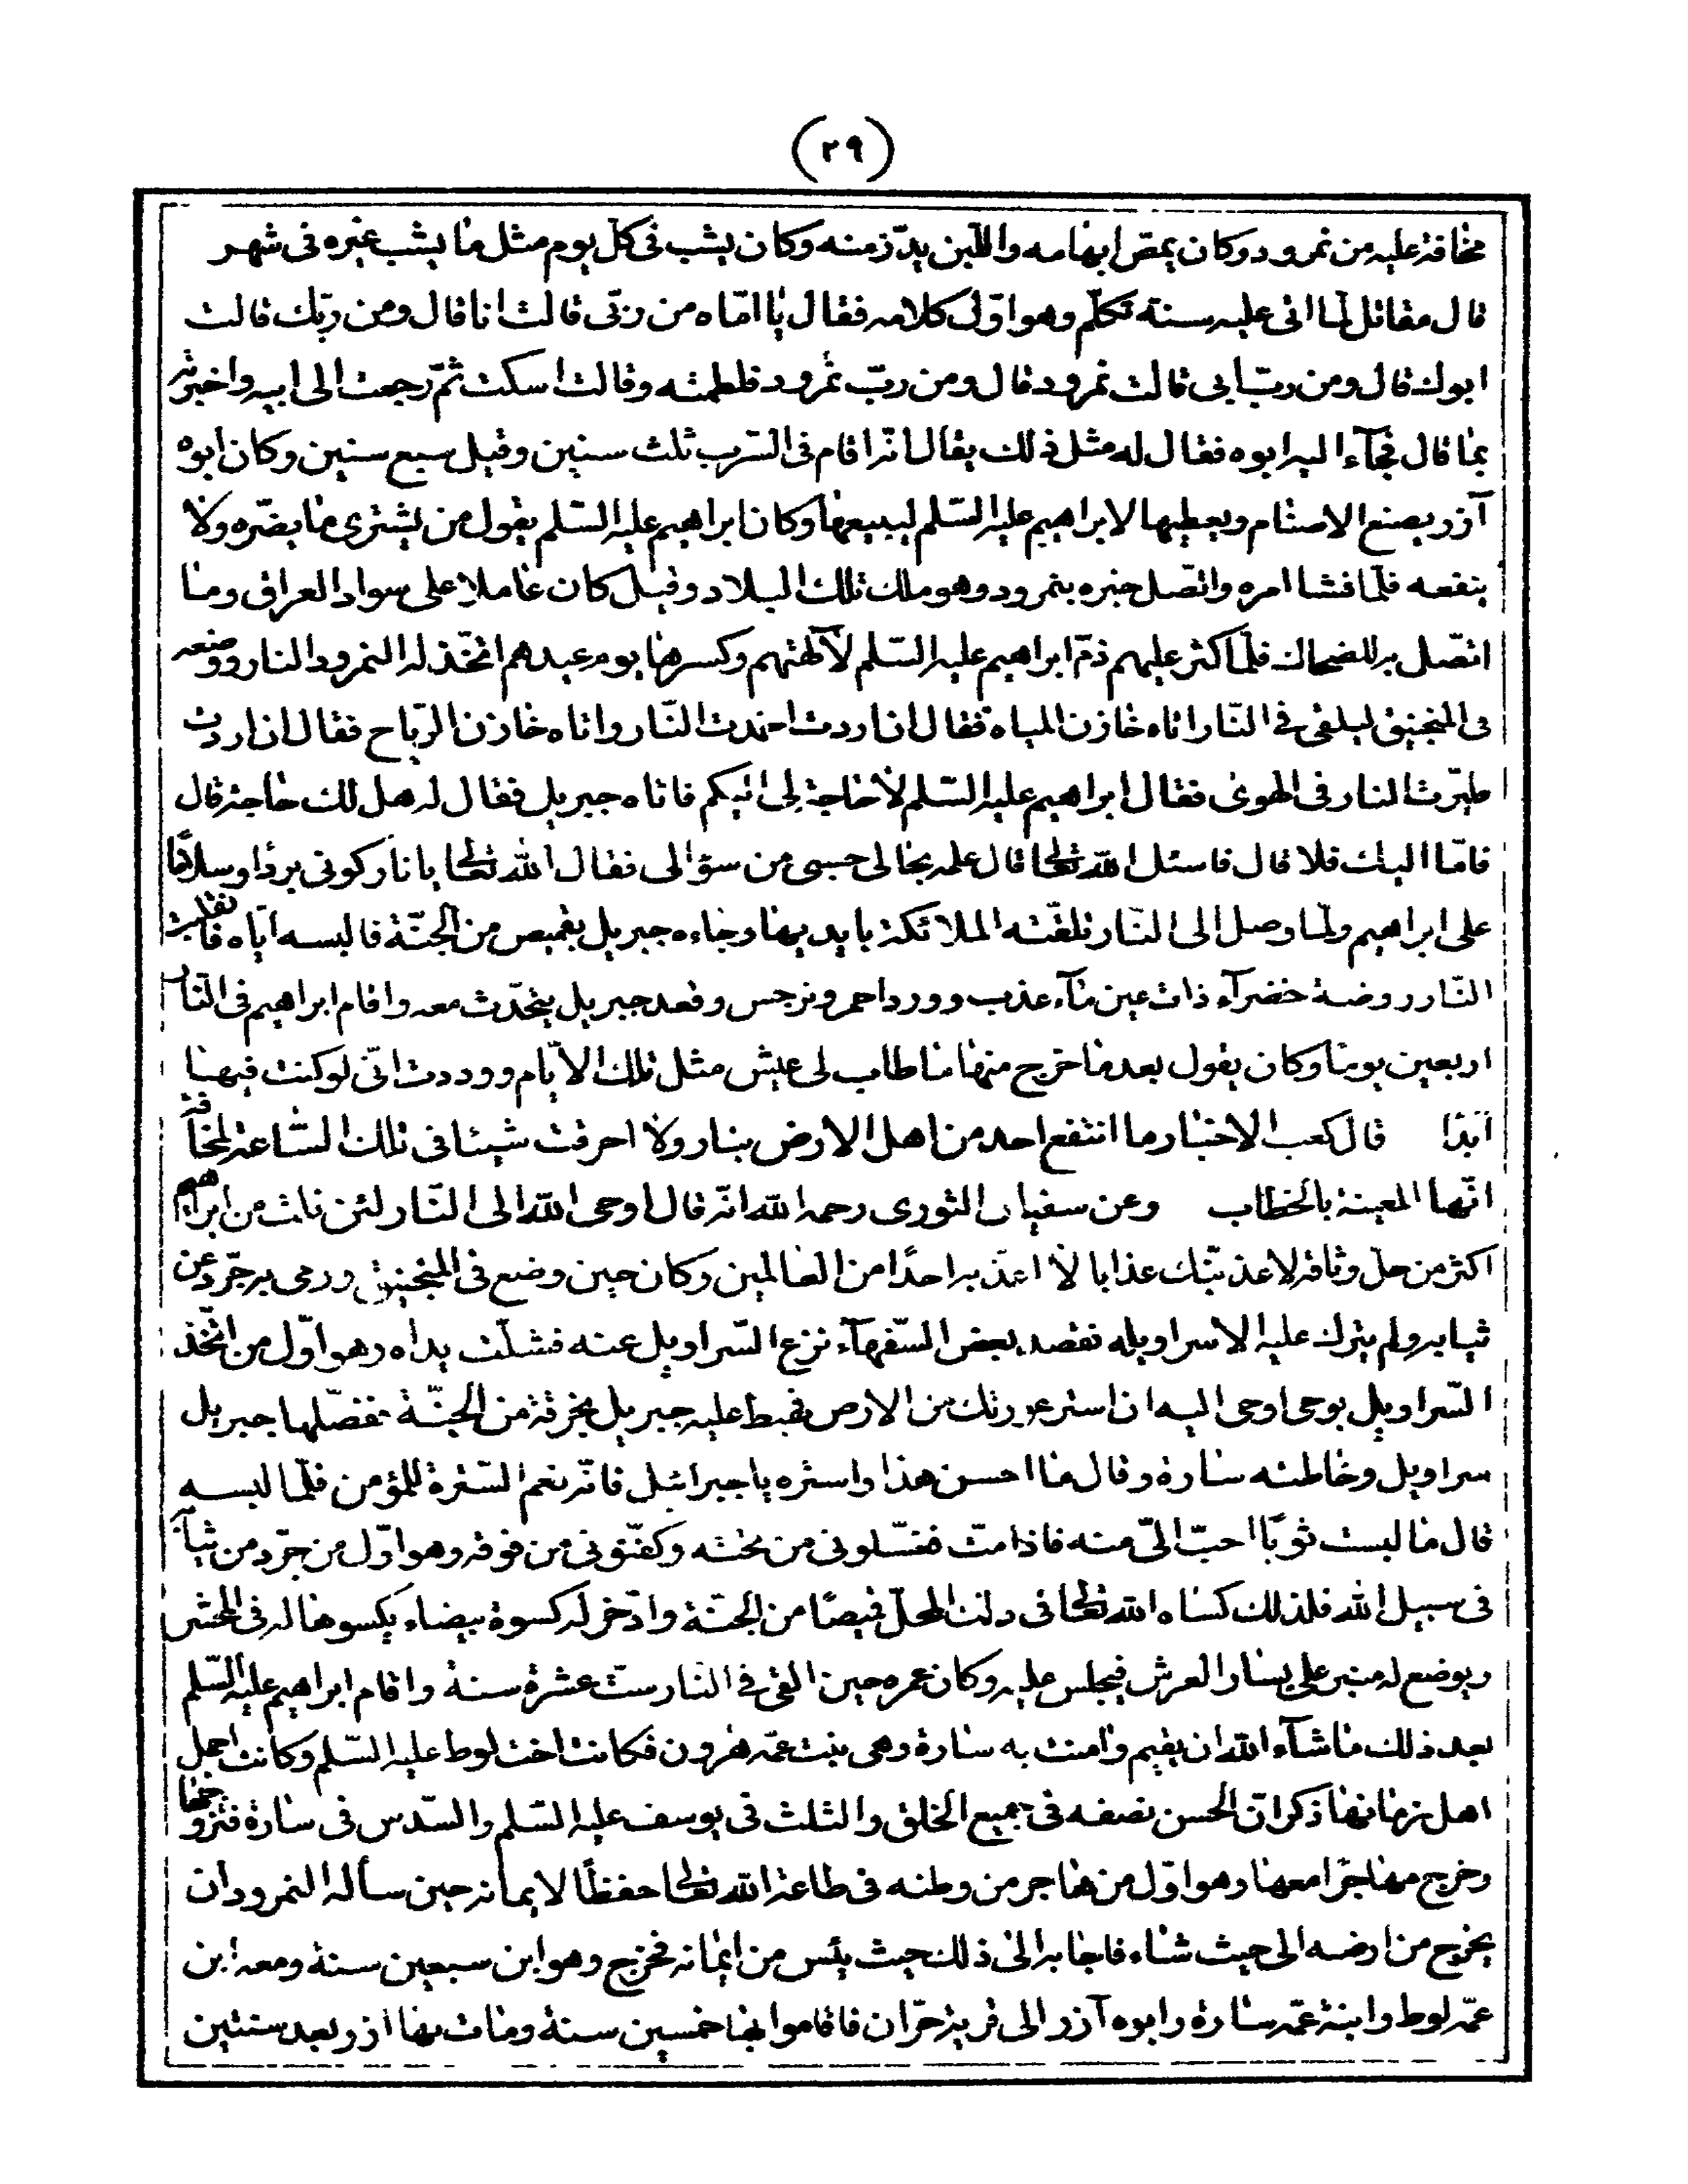 (٢٩)
مخافة عليه من نمرود وكان يمصّ ابهامه واللّبن يدرّ منه وكان يشب فى كلّ يوم مثل ما يشب غيره فى شهر
قال مقاتل لما اتى عليه سنة تكلّم وهو اوّل كلامه فقال يا امّاه من ربّى قالت انا قال ومن ربّك قالت
ابوك قال ومن ربّ ابى قالت نمرود قال ومن ربّ نمرود فلطمته وقالت اسكت ثمّ رجعت الى ابيه واخبرته
بما قال فجآء اليه ابوه فقال له مثل ذلك يقال انّه اقام فى السّرب ثلث سنين وقيل سبع سنين وكان ابوه
آزر يصنع الاصنام ويعطيها لابراهيم عليه السّلم ليبيعها وكان ابراهيم عليه السّلم يقول من يشترى ما يضرّه ولا
ينفعه فلمّا فشا امره واتّصل خبره بنمرود وهو ملك تلك البلاد وقيل كان عاملا على سواد العراق وما
اتّصل به للضحاك فلمّا كثر عليهم ذمّ ابراهيم عليه السّلم لآلهتهم وكسرها يوم عيدهم اتّخذ له النمرود النار ووضعه
فى المنجنيق ليلقى فى النّار اتاه خازن المياه فقال ان اردت اخمدت النّار واتاه خازن الرّياح فقال ان اردت
طيّرت النار فى الهوى فقال ابراهيم عليه السّلم لا حاجة لى اليكم فاتاه جبريل فقال له هل لك حاجة قال
فامّا اليك فلا قال فاسئل الله تعالى قال علمه بحالى حسبى من سؤالى فقال الله تعالى يا نار كونى بردًا وسلامًا
على ابراهيم ولمّا وصل الى النّار تلقّته الملائكة بايديها وجاءه جبريل بقميص من الجنّة فالبسه ايّاه فانقلبت
النّار روضة خضرآء ذات عين مآء عذب وورد احمر ونرجس وقعد جبريل يتحدّث معه واقام ابراهيم فى النّار
اربعين يوما وكان يقول بعد ما خرج منها ما طاب لى عيش مثل تلك الايّام ووددت انّى لو كنت فيها
ابدا قال كعب الاحبار ما انتفع احد من اهل الارض بنار ولا احرقت شيئا فى تلك السّاعة لمخافة
انّها المعينة بالخطاب وعن سفيان الثورى رحمه الله انّه قال اوحى الله الى النّار لئن نلت من ابراهيم
اكثر من حلّ وثاقه لاعذبنّك عذابا لا اعذّبه احدًا من العالمين وكان حين وضع فى المنجنيق ورمى به جرّد عن
ثيابه ولم يترك عليه الا سراويله فقصد بعض السّفهآء نزع السّراويل عنه فشلّت يداه وهو اوّل من اتّخذ
السّراويل بوحى اوحى اليه ان استر عورتك من الارض فهبط عليه جبريل بخرقة من الجنّة ففصّلها جبريل
سراويل وخاطته سارة وقال ما احسن هذا واستره يا جبرائيل فانّه نعم السّترة للمؤمن فلمّا لبسه
قال ما لبست ثوبًا احبّ الىّ منه فاذا متّ فغسّلونى من تحته وكفّنونى من فوقه وهو اوّل من جرّد من ثيابه
فى سبيل الله فلذلك كساه الله تعالى فى ذلك المحلّ قميصًا من الجنّة وادّخر له كسوة بيضاء يكسوها له فى المحشر
ويوضع له منبر على يسار العرش فيجلس عليه وكان عمره حين القى فى النار ستّ عشرة سنة واقام ابراهيم عليه السّلم
بعد ذلك ما شآء الله ان يقيم وامنت به سارة وهى بنت عمّه هرون فكانت اخت لوط عليه السّلم وكانت اجمل
اهل زمانها ذكر انّ الحسن نصفه فى جميع الخلق والثلث فى يوسف عليه السّلم والسّدس فى سارة فتزوّجها
وخرج مهاجرًا معها وهو اوّل من هاجر من وطنه فى طاعة الله تعالى حفظًا لايمانه حين سأله النمرود ان
يخرج من ارضه الى حيث شاء فاجابه الى ذلك حيث يئس من ايمانه فخرج وهو ابن سبعين سنة ومعه ابن
عمّه لوط وابنة عمّه سارة وابوه آزر الى قرية حرّان فاقاموا بها خمسين سنة ومات بها ازر بعد سنتين